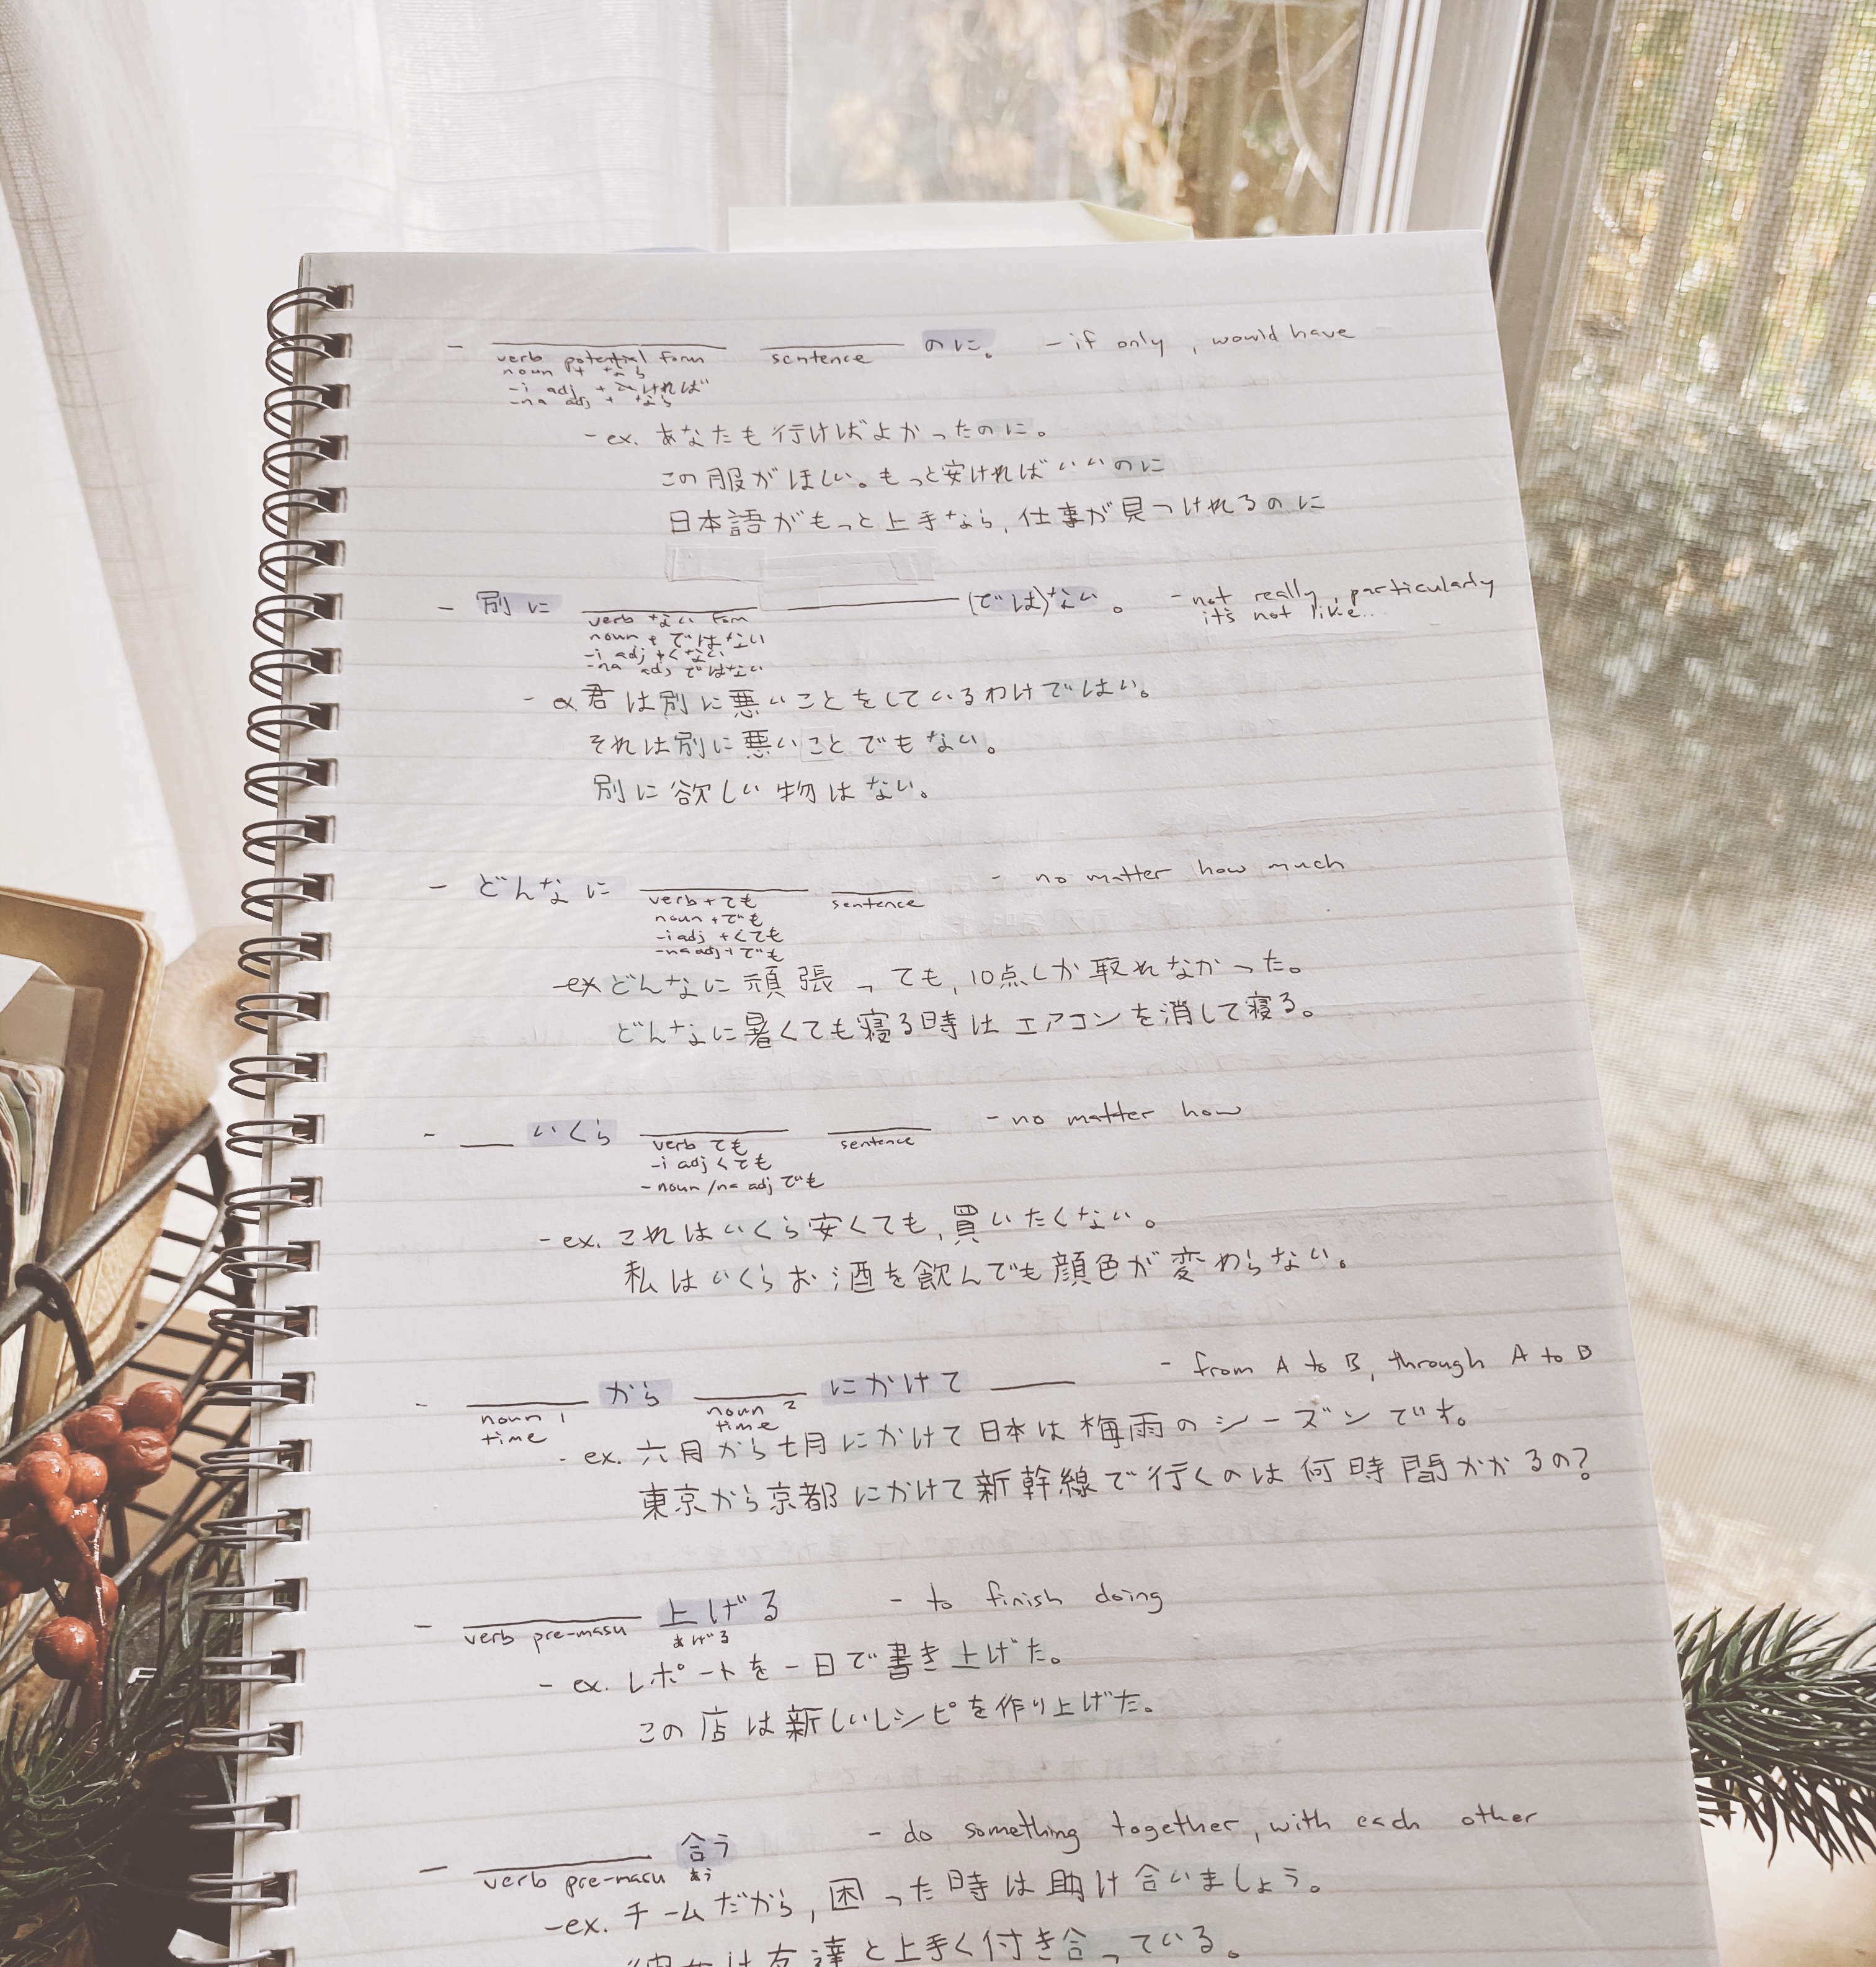 - ____ ____ のに。 - if only, would have
verb potential form sentence
noun + なら
-i adj + ければ
-na adj + なら
- ex. あなたも行けばよかったのに。
この服がほしい。もっと安ければいいのに
日本語がもっと上手なら, 仕事が見つけれるのに
- 別に ____ ____ (では)ない。 - not really, particularly
it's not like...
verb ない form
noun + ではない
-i adj + くない
-na adj ではない
- ex 君は別に悪いことをしているわけではい。
それは別に悪いことでもない。
別に欲しい物はない。
- どんなに ____ ____ - no matter how much
verb + ても sentence
noun + でも
-i adj + くても
-na adj + でも
-ex どんなに頑張っても, 10点しか取れなかった。
どんなに暑くても寝る時はエアコンを消して寝る。
- __ いくら ____ ____ - no matter how
verb ても sentence
-i adj くても
- noun /na adj でも
- ex. これはいくら安くても, 買いたくない。
私はいくらお酒を飲んでも顔色が変わらない。
- ____ から ____ にかけて ____ - from A to B, through A to B
noun 1 noun 2
time time
- ex. 六月から七月にかけて日本は梅雨のシーズンですね。
東京から京都にかけて新幹線で行くのは何時間かかるの?
- ____ 上げる - to finish doing
verb pre-masu あげる
- ex. レポートを一日で書き上げた。
この店は新しいレシピを作り上げた。
- ____ 合う - do something together, with each other
verb pre-masu あう
-ex. チームだから, 困った時は助け合いましょう。
彼女は友達と上手く付き合っている。